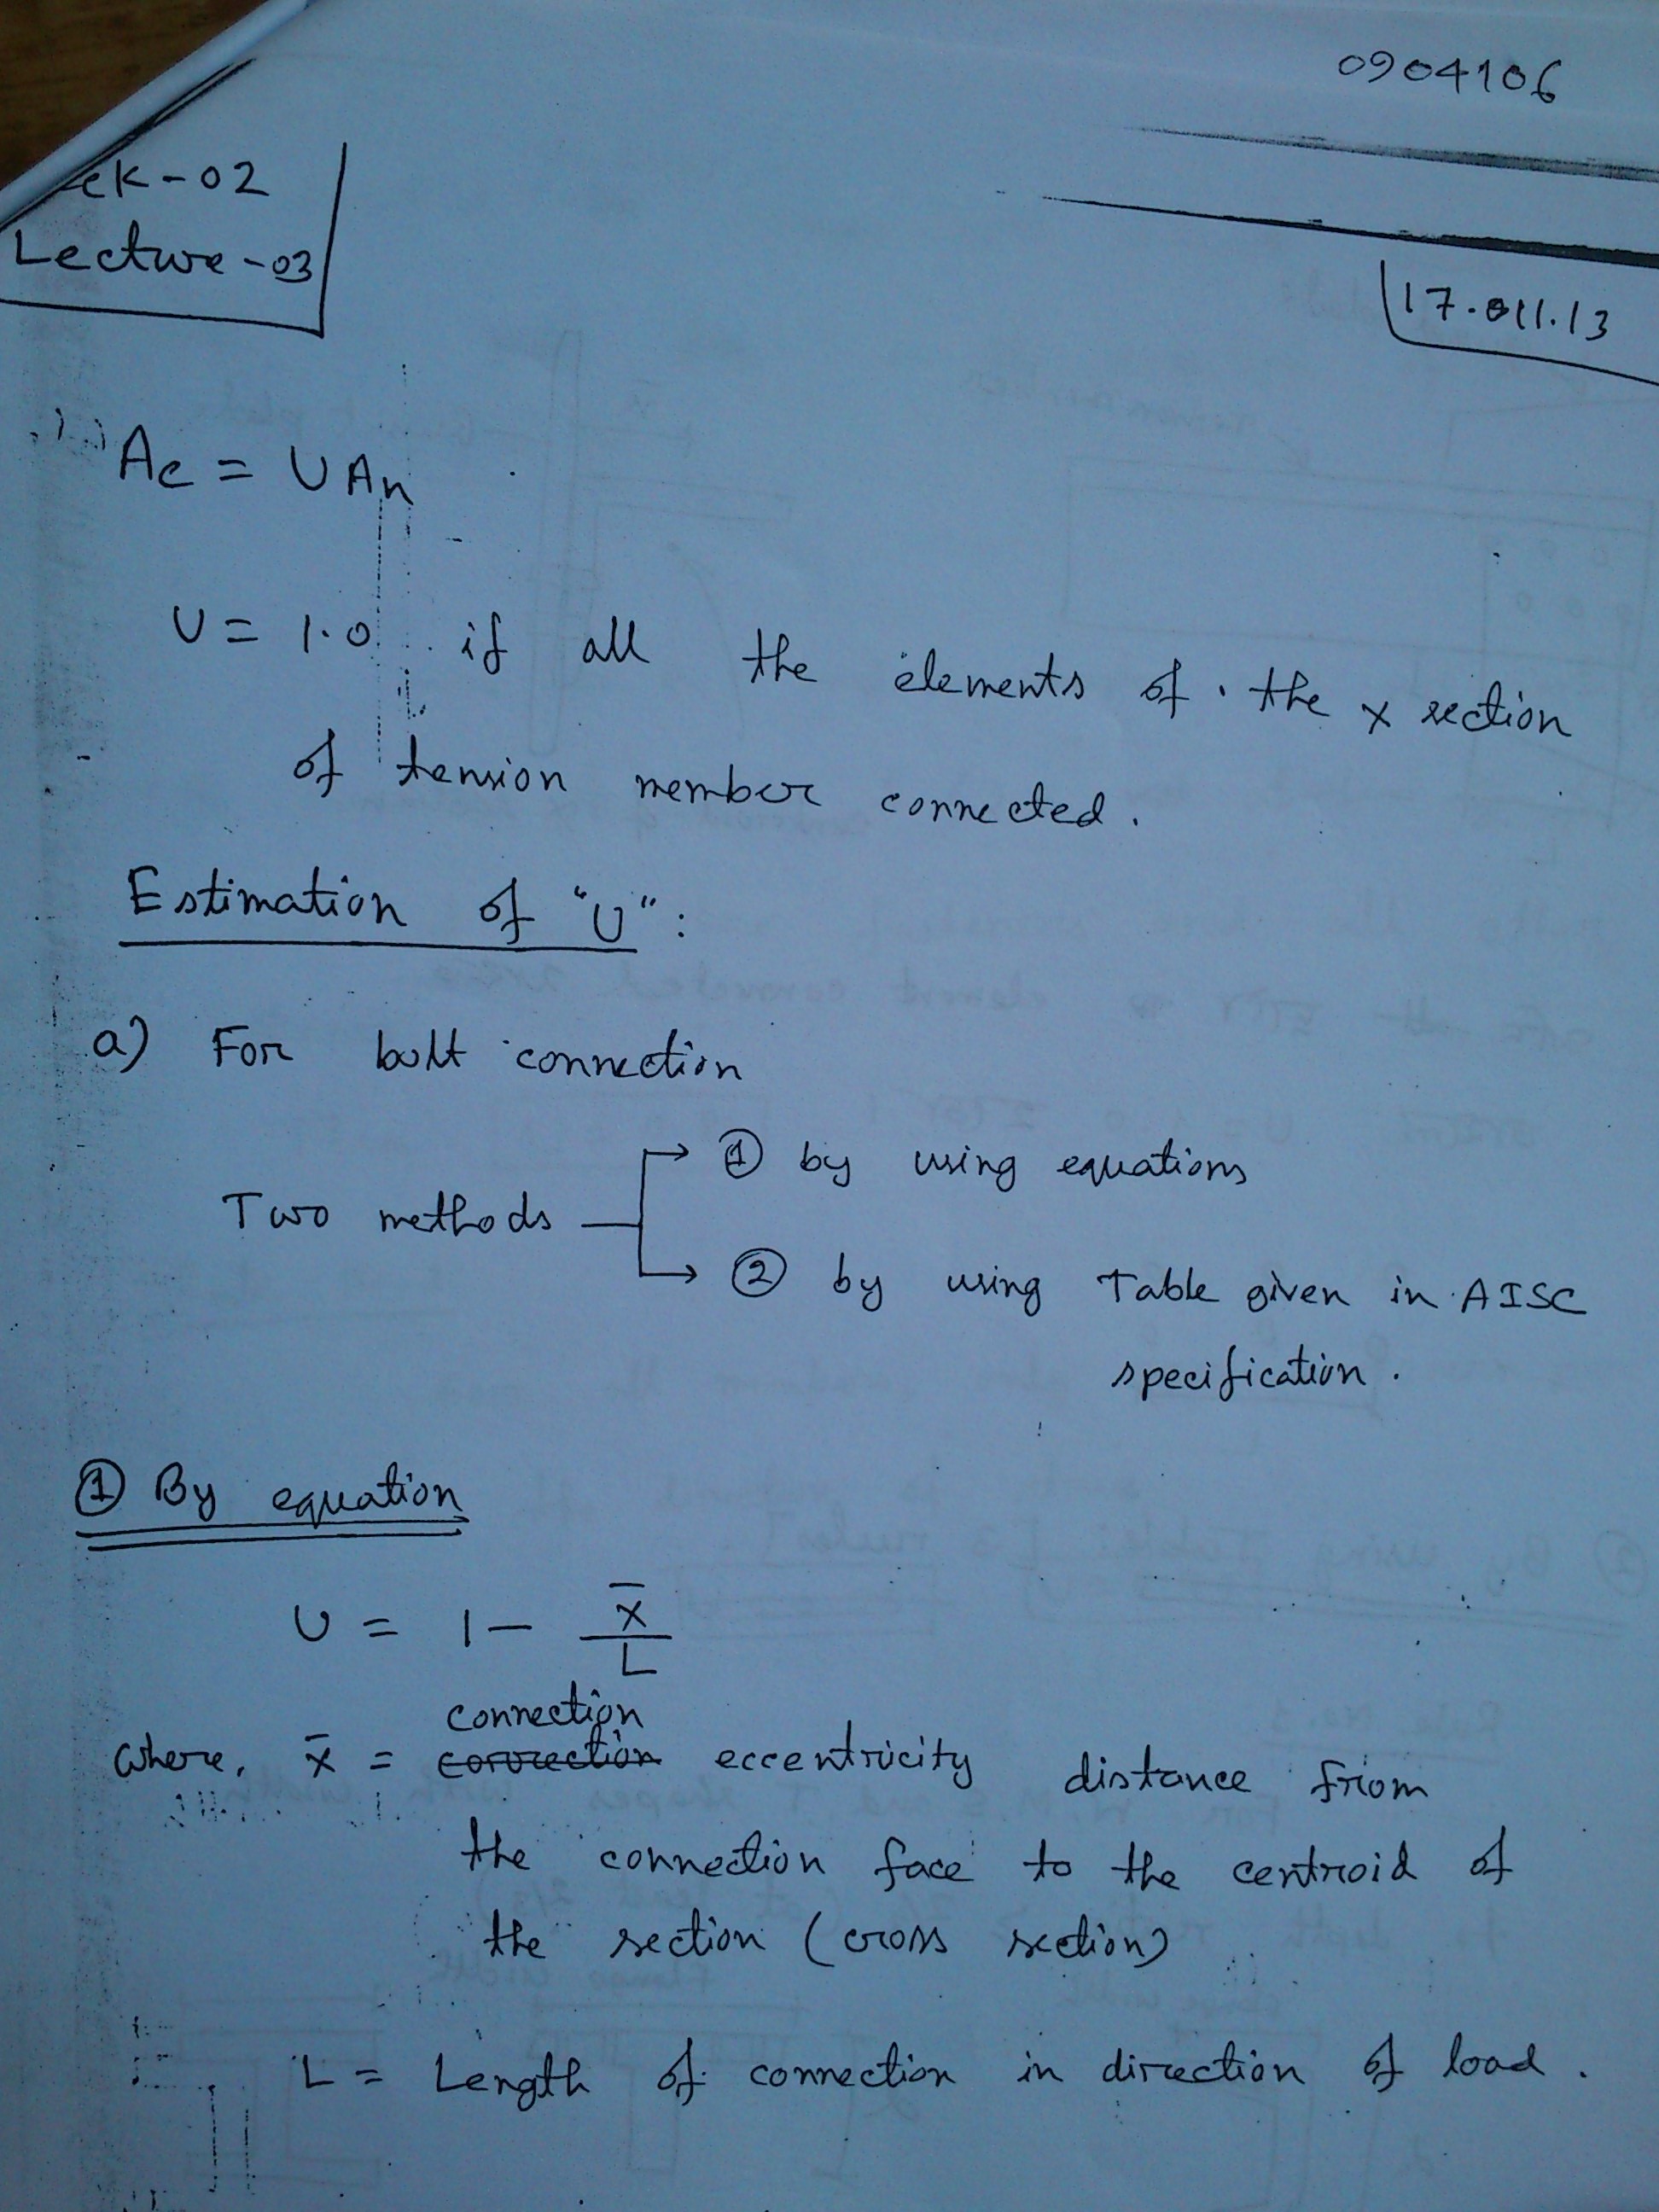 0904106
ek-02
Lecture-03
17.011.13
Ae = UAn
U = 1.0 if all the elements of the x section
of tension member connected.
Estimation of "U":
a) For bolt connection
Two methods
① by using equations
② by using Table given in AISC
specification.
① By equation
U = 1 - x̄/L
where, x̄ = connection eccentricity distance from
the connection face to the centroid of
the section (cross section)
L = Length of connection in direction of load.